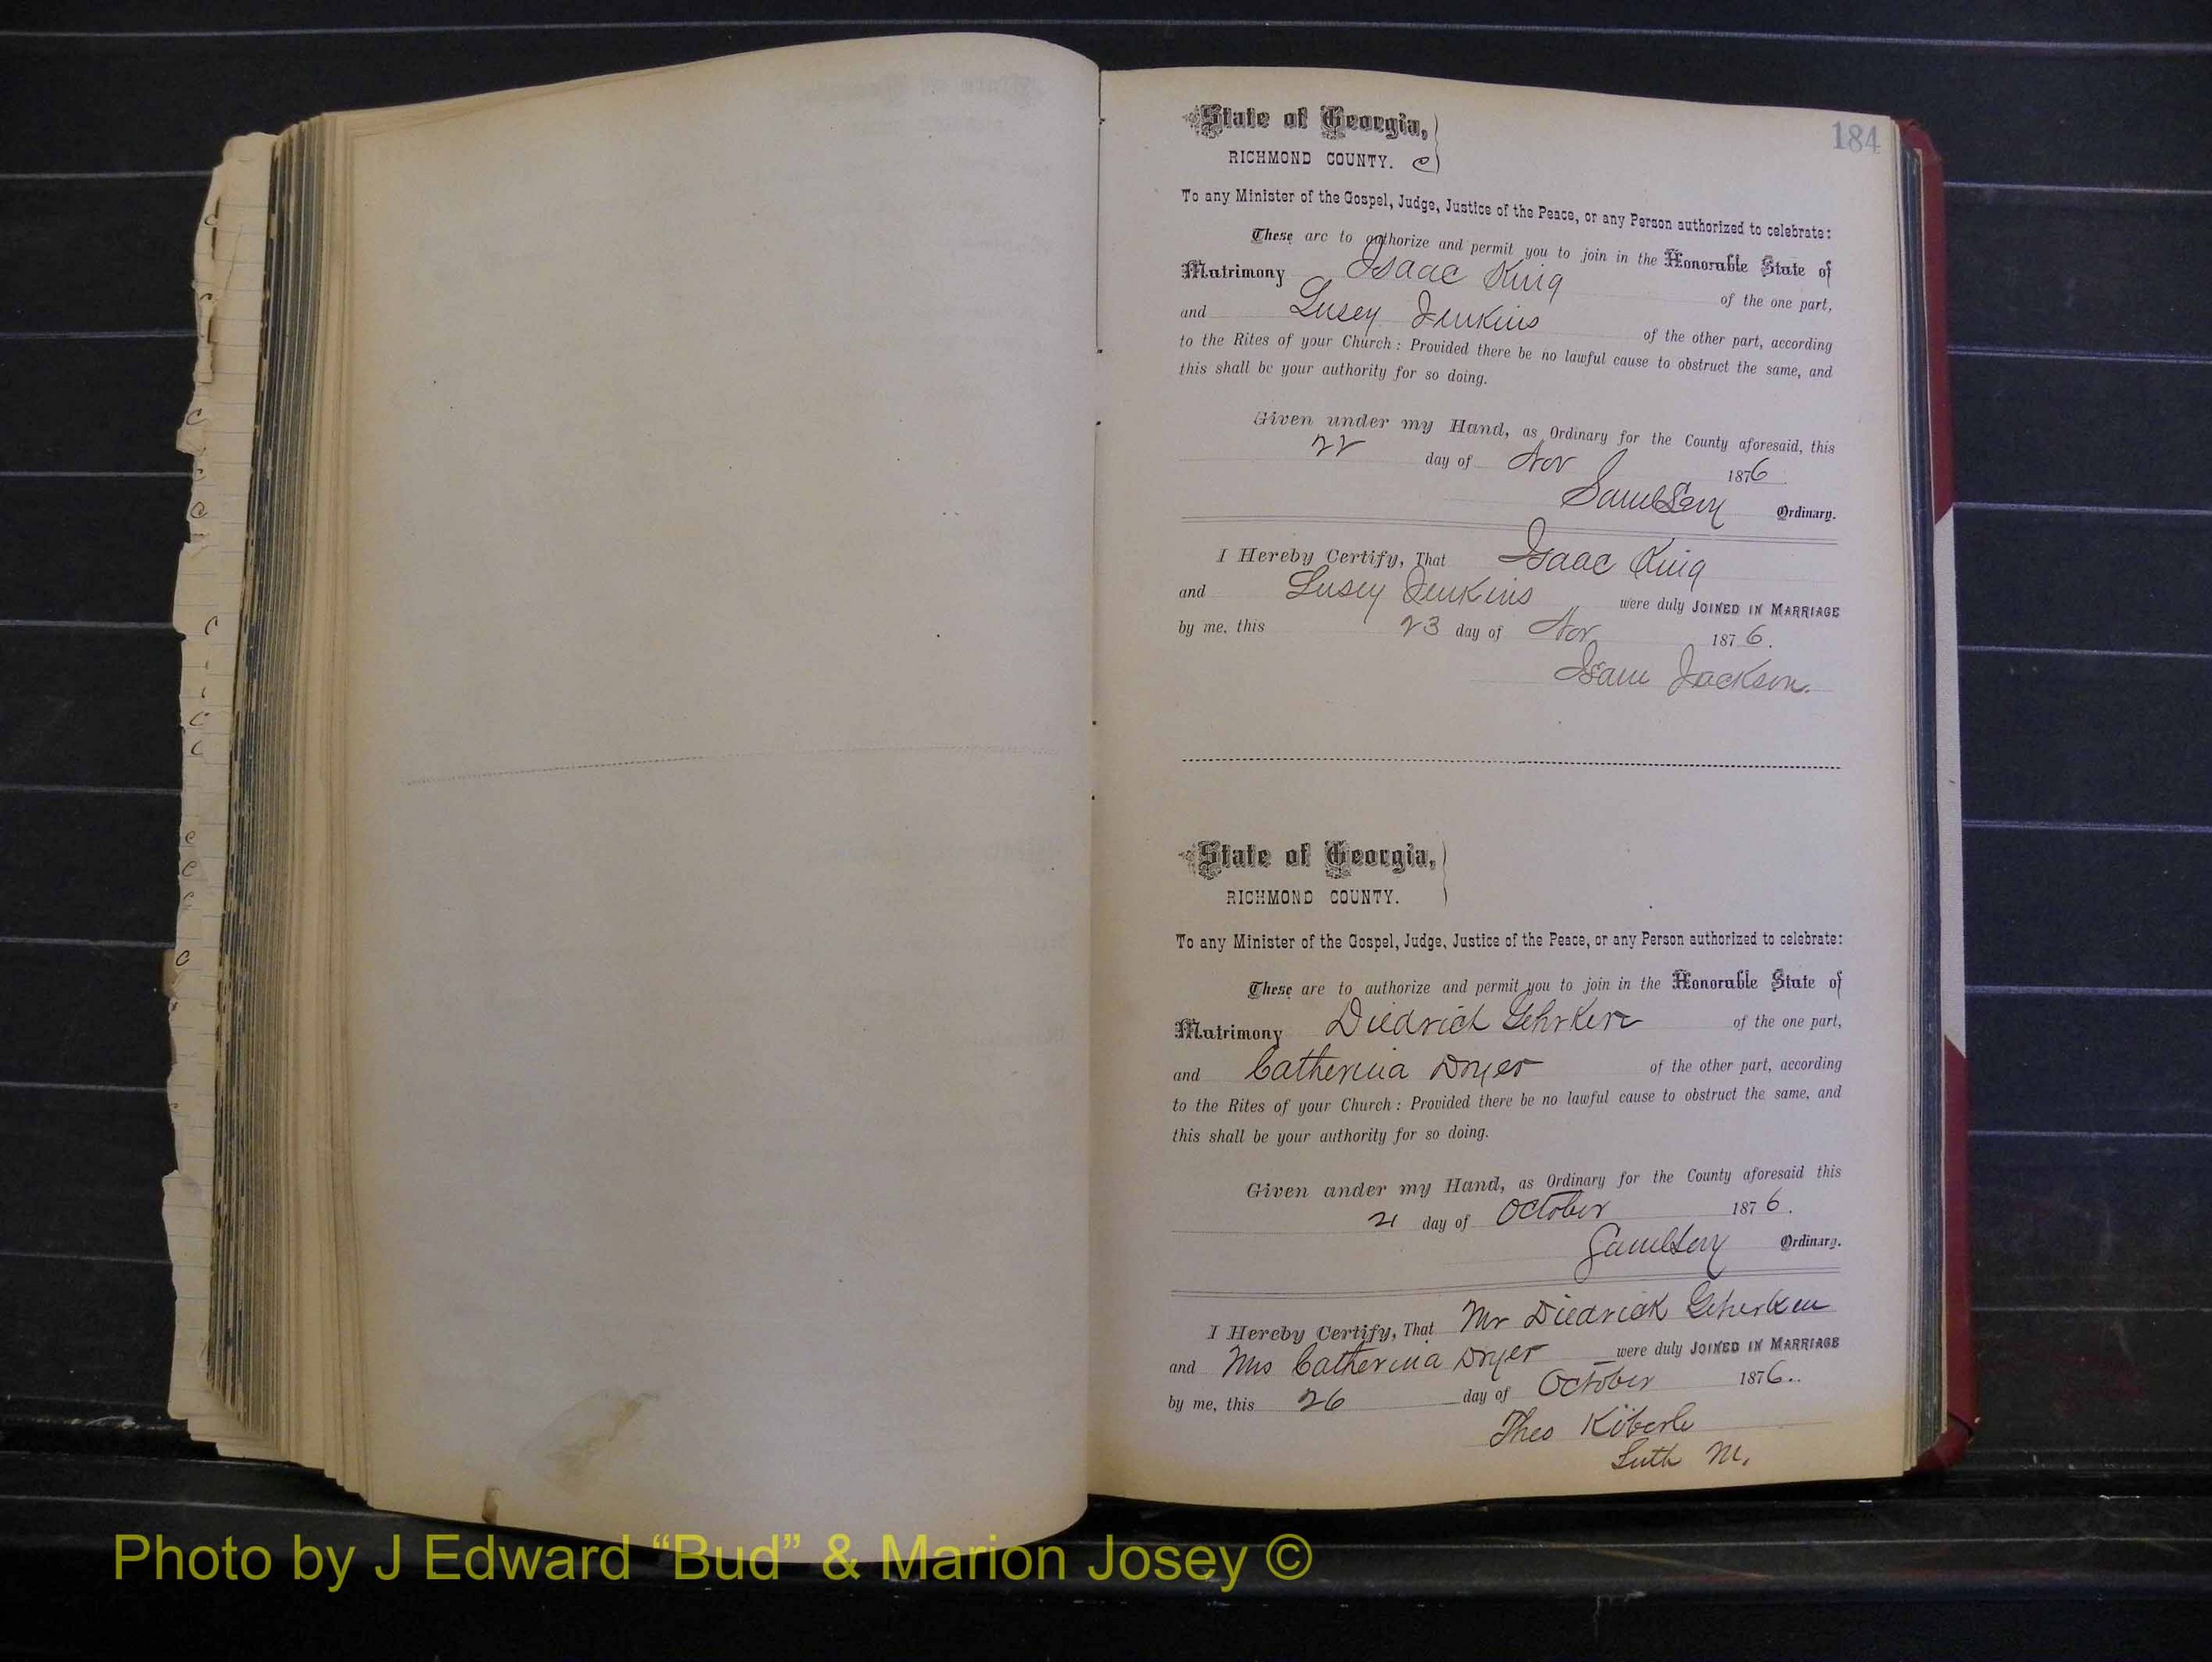 184
State of Georgia,
RICHMOND COUNTY. C
To any Minister of the Gospel, Judge, Justice of the Peace, or any Person authorized to celebrate:
These are to authorize and permit you to join in the Honorable State of
Matrimony Isaac King of the one part,
and Lusey Jenkins of the other part, according
to the Rites of your Church: Provided there be no lawful cause to obstruct the same, and
this shall be your authority for so doing.
Given under my Hand, as Ordinary for the County aforesaid, this
22 day of Nov 1876
Saml Levy Ordinary.
I Hereby Certify, That Isaac King
and Lusey Jenkins were duly JOINED IN MARRIAGE
by me, this 23 day of Nov 1876.
Isam Jackson.
State of Georgia,
RICHMOND COUNTY.
To any Minister of the Gospel, Judge, Justice of the Peace, or any Person authorized to celebrate:
These are to authorize and permit you to join in the Honorable State of
Matrimony Diedrich Gehrken of the one part,
and Catherina Dryer of the other part, according
to the Rites of your Church: Provided there be no lawful cause to obstruct the same, and
this shall be your authority for so doing.
Given under my Hand, as Ordinary for the County aforesaid this
21 day of October 1876.
Saml Levy Ordinary.
I Hereby Certify, That Mr Diedrick Geherken
and Mrs Catherina Dryer were duly JOINED IN MARRIAGE
by me, this 26 day of October 1876..
Theo Köberle
Luth M.
Photo by J Edward “Bud” & Marion Josey ©